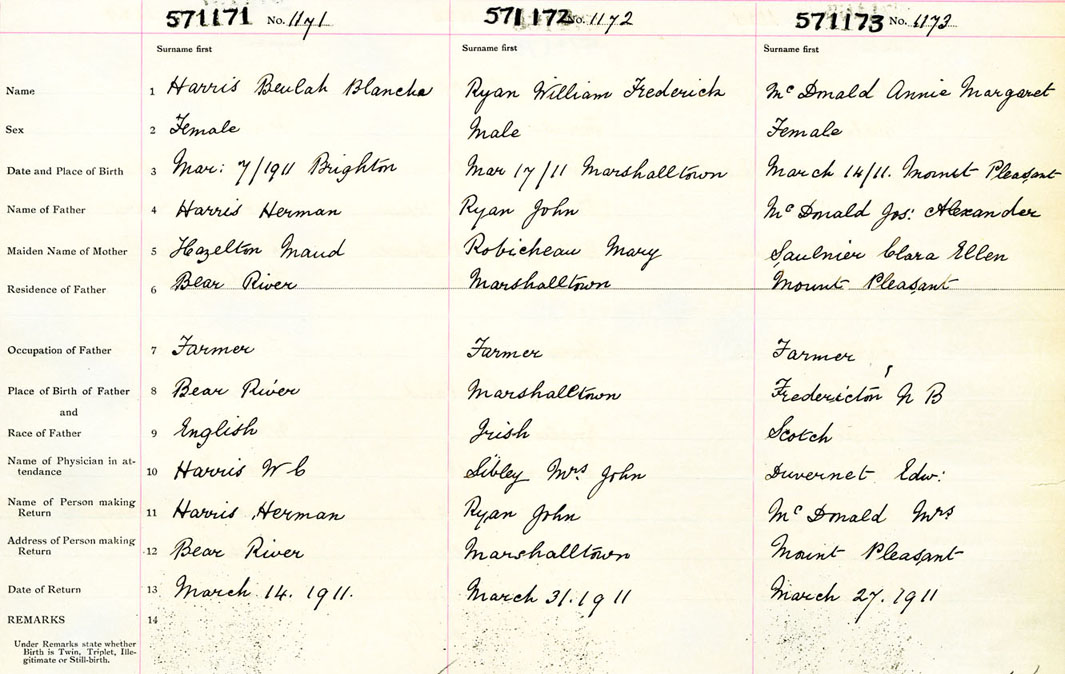 571171 No. 1171 571172 No. 1172 571173 No. 1173
Surname first Surname first Surname first
Name 1 Harris Beulah Blanche Ryan William Frederick Mc Donald Annie Margaret
Sex 2 Female Male Female
Date and Place of Birth 3 Mar: 7/1911 Brighton Mar 17/11 Marshalltown March 14/11. Mount Pleasant
Name of Father 4 Harris Herman Ryan John Mc Donald Jos: Alexander
Maiden Name of Mother 5 Hazelton Maud Robicheau Mary Saulnier Clara Ellen
Residence of Father 6 Bear River Marshalltown Mount Pleasant
Occupation of Father 7 Farmer Farmer Farmer
Place of Birth of Father 8 Bear River Marshalltown Fredericton N B
and
Race of Father 9 English Irish Scotch
Name of Physician in at-
tendance 10 Harris W C Sibley Mrs John Duvernet Edw:
Name of Person making
Return 11 Harris Herman Ryan John Mc Donald Mrs
Address of Person making
Return 12 Bear River Marshalltown Mount Pleasant
Date of Return 13 March 14. 1911. March 31. 1911 March 27. 1911
REMARKS 14
Under Remarks state whether
Birth is Twin, Triplet, Ille-
gitimate or Still-birth.